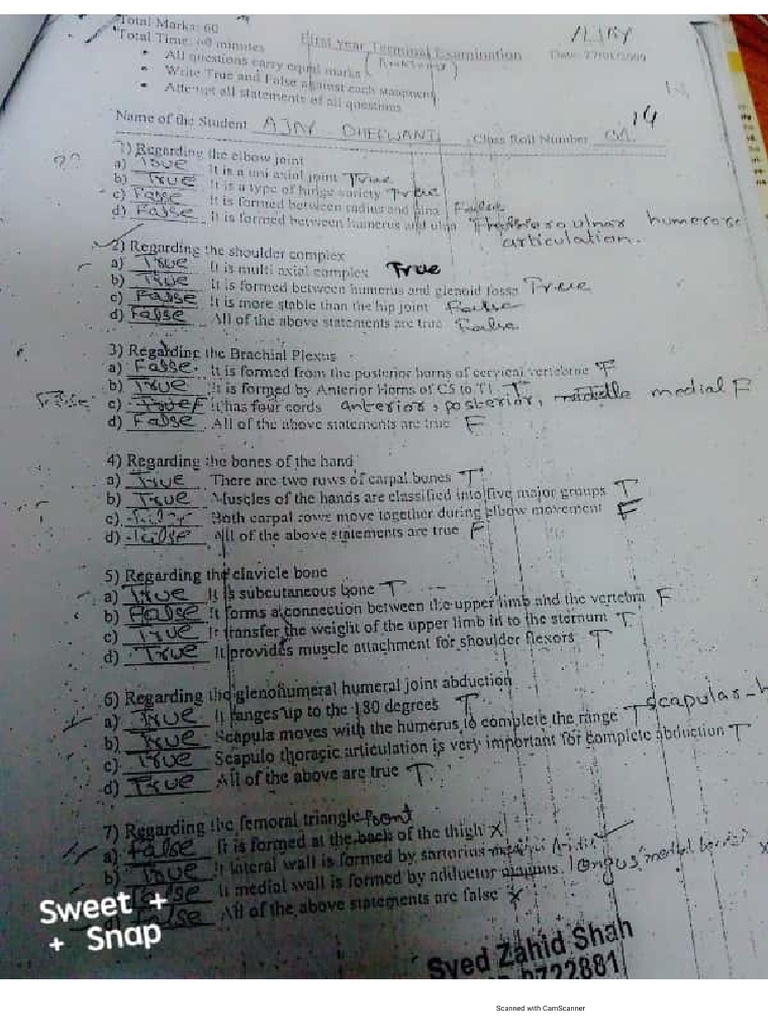 Total Marks: 60
Total Time: 60 minutes
First year Terminal Examination
AJAY
• All questions carry equal marks
• Write True and False against each statement
• Attempt all statements of all questions
14
Name of the Student AJAY Class Roll Number
1) Regarding the elbow joint
a) True It is a uni axial joint True
b) True It is a type of hinge variety True
c) False It is formed between radius and ulna False
d) False It is formed between humerus and ulna ulnar humeroro
articulation.
2) Regarding the shoulder complex
a) True It is multi axial complex True
b) True It is formed between humerus and glenoid fossa True
c) False It is more stable than the hip joint False
d) False All of the above statements are true False
3) Regarding the Brachial Plexus
a) False It is formed from the posterior horns of cervical vertebrae F
b) True It is formed by Anterior Horns of C5 to T1 T
False c) True F It has four cords anterior, posterior, middle medial F
d) False All of the above statements are true F
4) Regarding the bones of the hand
a) True There are two rows of carpal bones T
b) True Muscles of the hands are classified into five major groups T
c) False Both carpal rows move together during elbow movement F
d) False All of the above statements are true F
5) Regarding the clavicle bone
a) True It is subcutaneous bone T
b) False It forms a connection between the upper limb and the vertebra F
c) True It transfer the weight of the upper limb in to the sternum T
d) True It provides muscle attachment for shoulder flexors T
6) Regarding the glenohumeral humeral joint abduction
a) True It ranges up to the 180 degrees T
b) True Scapula moves with the humerus to complete the range T scapular-h
c) True Scapulo thoracic articulation is very important for complete abduction T
d) True All of the above are true T
7) Regarding the femoral triangle front
a) False It is formed at the back of the thigh x
b) True It lateral wall is formed by sartorius
False It medial wall is formed by adductor magnus longus, medial border x
False All of the above statements are false x
Sweet +
+ Snap
Syed Zahid Shah
9722881
Scanned with CamScanner